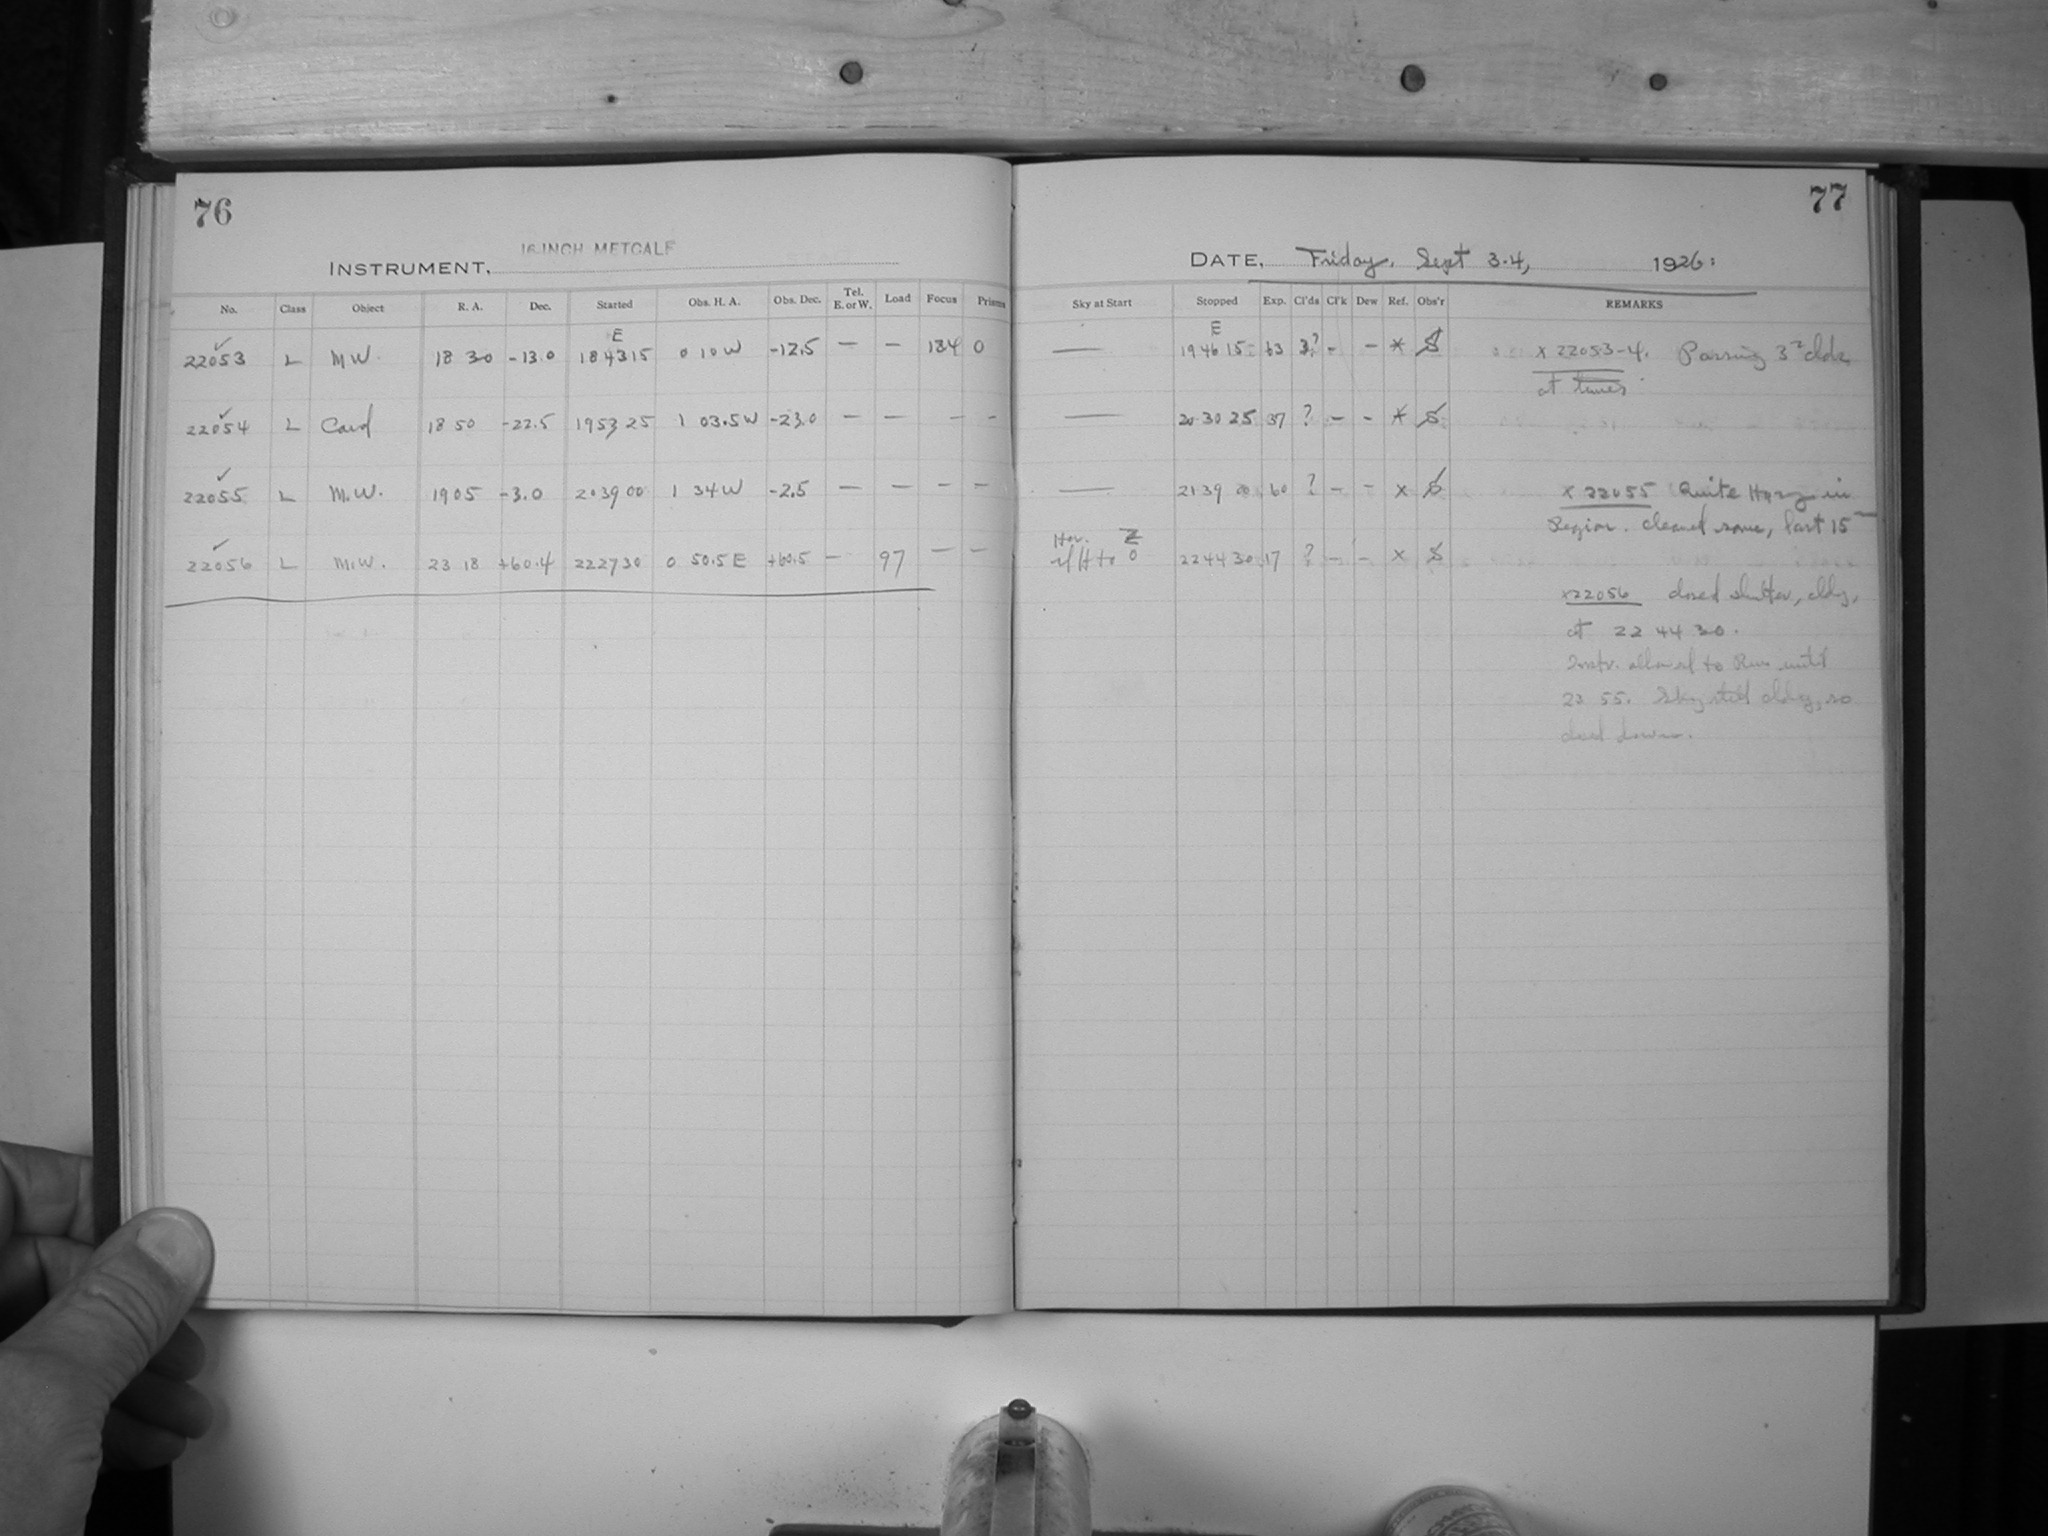 76
16-INCH METCALF
INSTRUMENT,
No. Class Object R. A. Dec. Started Obs. H. A. Obs. Dec. Tel. E. or W. Load Focus Prisms
E
22053 L M.W. 18 30 -13.0 18 43 15 0 10 W -12.5 — — 184 0
22054 L 18 50 -22.5 19 53 25 1 03.5 W -23.0 — — — —
22055 L M.W. 19 05 -3.0 20 39 00 1 34 W -2.5 — — — —
22056 L M.W. 23 18 +60.4 22 27 30 0 50.5 E +60.5 — 97 — —
77
DATE, Friday, Sept 3-4, 1926:
Sky at Start Stopped Exp. Cl'ds Cl'k Dew Ref. Obs'r REMARKS
E
— 19 46 15 63 3? - - * S x 22053-4. Passing clds
at times
— 20 30 25 37 ? - - * S
— 21 39 00 60 ? - - x S x 22055 Quite Hazy in
Region. cleared some, last 15
Hor. Z
H to 0 22 44 30 17 ? - - x S
x22056 closed shutter, cldy,
at 22 44 30.
Instr. allowed to Run until
23 55. Sky still cldy, so
closed down.